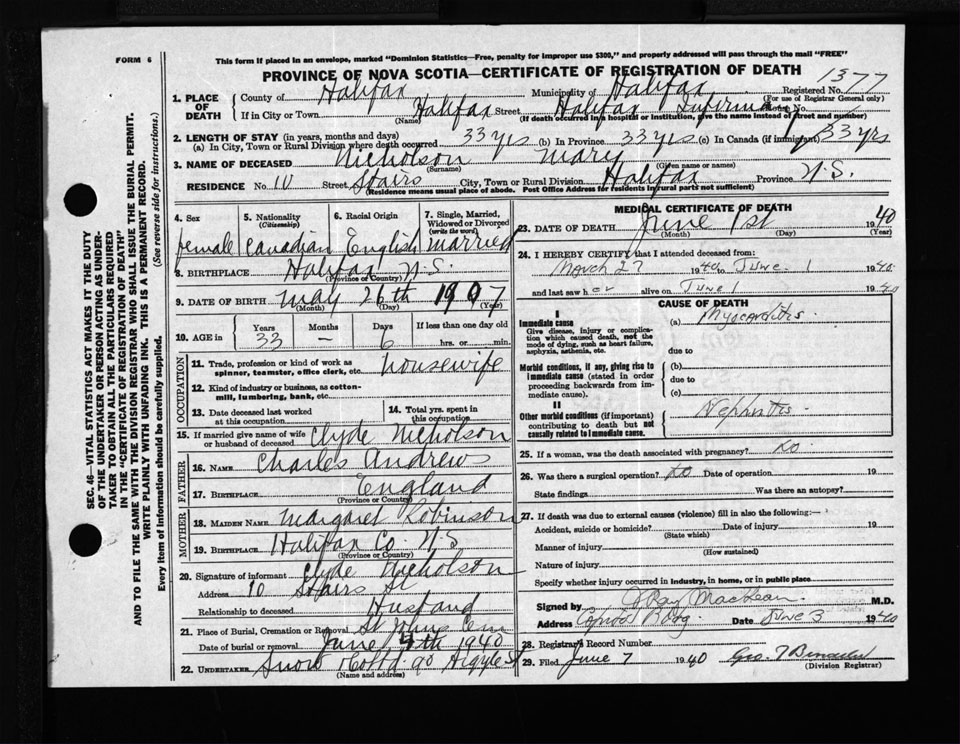 FORM 6
This form if placed in an envelope, marked "Dominion Statistics—Free, penalty for improper use $300," and properly addressed will pass through the mail "FREE"
PROVINCE OF NOVA SCOTIA—CERTIFICATE OF REGISTRATION OF DEATH
1377
1. PLACE OF DEATH
County of Halifax Municipality of Halifax Registered No.
(For use of Registrar General only)
If in City or Town Halifax Street Halifax Infirmary No.
(Name) (If death occurred in a hospital or institution, give the name instead of street and number)
2. LENGTH OF STAY (in years, months and days)
(a) In City, Town or Rural Division where death occurred 33 yrs (b) In Province 33 yrs (c) In Canada (if immigrant) 33 yrs
3. NAME OF DECEASED Nicholson Mary
(Surname) (Given name or names)
RESIDENCE No. 10 Street Stairs City, Town or Rural Division Halifax Province N.S.
(Residence means usual place of abode. Post Office Address for residents in rural parts not sufficient)
4. Sex 5. Nationality (Citizenship) 6. Racial Origin 7. Single, Married, Widowed or Divorced (write the word)
female Canadian English married
8. BIRTHPLACE Halifax N.S.
(Province or Country)
9. DATE OF BIRTH May 26th 1907
(Month) (Day) (Year)
10. AGE in Years Months Days If less than one day old
33 — 6 hrs. or min.
OCCUPATION
11. Trade, profession or kind of work as spinner, teamster, office clerk, etc. housewife
12. Kind of industry or business, as cotton-mill, lumbering, bank, etc.
13. Date deceased last worked at this occupation
14. Total yrs. spent in this occupation
15. If married give name of wife or husband of deceased Clyde Nicholson
FATHER
16. NAME Charles Andrews
17. BIRTHPLACE England
(Province or Country)
MOTHER
18. MAIDEN NAME Margaret Robinson
19. BIRTHPLACE Halifax Co. N.S
(Province or Country)
20. Signature of informant Clyde Nicholson
Address 10 Stairs St
Relationship to deceased Husband
21. Place of Burial, Cremation or Removal St Johns Cem
Date of burial or removal June 4th 1940
22. UNDERTAKER Snow 90 Argyle St
(Name and address)
MEDICAL CERTIFICATE OF DEATH
23. DATE OF DEATH June 1st 1940
(Month) (Day) (Year)
24. I HEREBY CERTIFY that I attended deceased from:
March 27 1940 to June 1 1940
and last saw her alive on June 1 1940
CAUSE OF DEATH
I
Immediate cause
Give disease, injury or complication which caused death, not the mode of dying, such as heart failure, asphyxia, asthenia, etc.
(a) Myocarditis
due to
Morbid conditions, if any, giving rise to immediate cause (stated in order proceeding backwards from immediate cause).
(b)
due to
(c)
II
Other morbid conditions (if important) contributing to death but not causally related to immediate cause.
Nephritis
25. If a woman, was the death associated with pregnancy? No
26. Was there a surgical operation? No Date of operation 19
State findings Was there an autopsy?
27. If death was due to external causes (violence) fill in also the following:—
Accident, suicide or homicide? Date of injury 19
(State which)
Manner of injury
(How sustained)
Nature of injury
Specify whether injury occurred in industry, in home, or in public place
Signed by J Ray MacLean M.D.
Address Date June 3 1940
28. Registrar's Record Number
29. Filed June 7 1940 Geo. T
(Division Registrar)
SEC. 46—VITAL STATISTICS ACT MAKES IT THE DUTY
OF THE UNDERTAKER OR PERSON ACTING AS UNDER-
TAKER TO OBTAIN ALL THE PARTICULARS REQUIRED
IN THE "CERTIFICATE OF REGISTRATION OF DEATH"
AND TO FILE THE SAME WITH THE DIVISION REGISTRAR WHO SHALL ISSUE THE BURIAL PERMIT.
WRITE PLAINLY WITH UNFADING INK. THIS IS A PERMANENT RECORD.
Every item of Information should be carefully supplied. (See reverse side for instructions.)